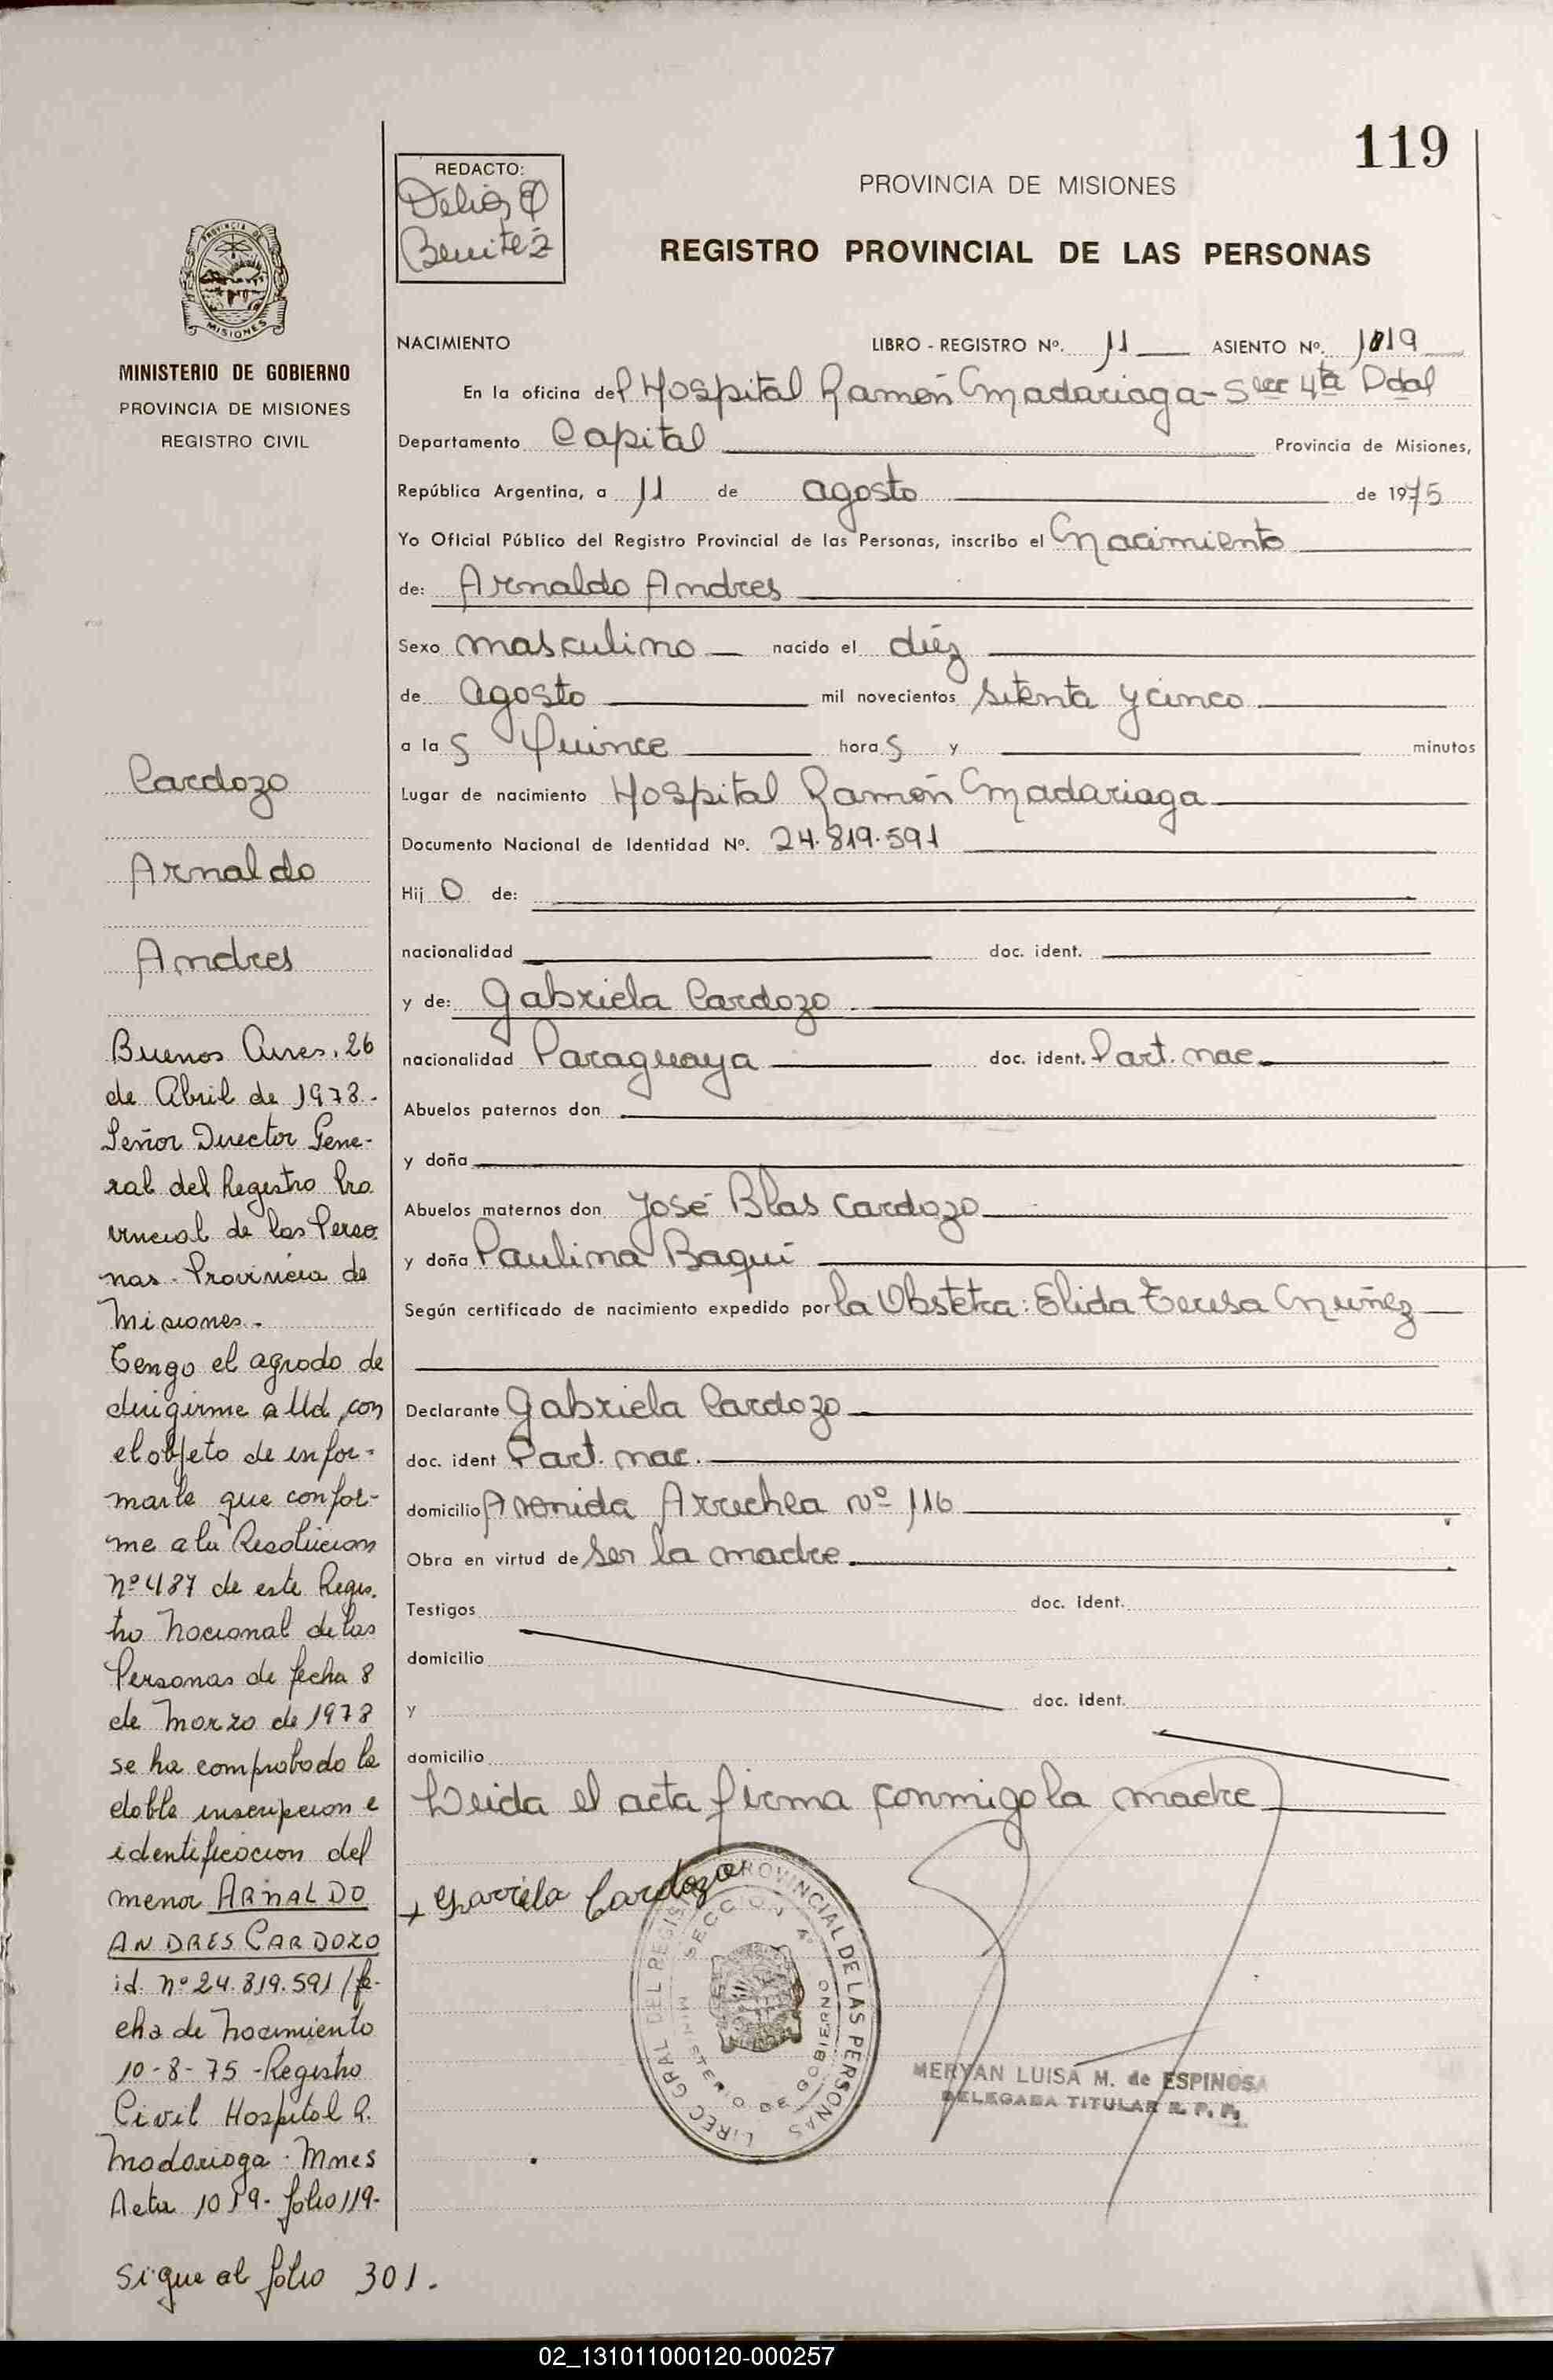 119
REDACTO:
Delia
Benitez
PROVINCIA DE MISIONES
REGISTRO PROVINCIAL DE LAS PERSONAS
MISIONES
MINISTERIO DE GOBIERNO
PROVINCIA DE MISIONES
REGISTRO CIVIL
NACIMIENTO LIBRO - REGISTRO Nº. 11 ASIENTO Nº. 1019
En la oficina del Hospital Ramón Madariaga - Secc 4ta Ddal
Departamento Capital Provincia de Misiones,
República Argentina, a 11 de agosto de 1975
Yo Oficial Público del Registro Provincial de las Personas, inscribo el Nacimiento
de: Arnaldo Andres
Sexo masculino nacido el diéz
de agosto mil novecientos setenta y cinco
a las Quince horas y minutos
Lugar de nacimiento Hospital Ramón Madariaga
Documento Nacional de Identidad Nº. 24.819.591
Hijo de:
nacionalidad doc. ident.
y de: Gabriela Cardozo
nacionalidad Paraguaya doc. ident. Part. nac.
Abuelos paternos don
y doña
Abuelos maternos don José Blas Cardozo
y doña Paulina Baqui
Según certificado de nacimiento expedido por la Obstetra: Elida Teresa Nuñez
Declarante Gabriela Cardozo
doc. ident Part. nac.
domicilio Avenida Arrechea Nº 116
Obra en virtud de ser la madre.
Testigos doc. ident.
domicilio
y doc. ident.
domicilio
Leida el acta firma conmigo la madre
Gavriela Cardozo
DIREC GRAL DEL REGIST PROVINCIAL DE LAS PERSONAS
SECCION 4º
MINISTERIO DE GOBIERNO
MERYAN LUISA M. de ESPINOSA
DELEGADA TITULAR R. P. P.
Cardozo
Arnaldo
Andres
Buenos Aires, 26
de Abril de 1978.
Señor Director Gene-
ral del Registro Pro
vincial de las Perso
nas. Provincia de
Misiones.
Tengo el agrado de
dirigirme a Ud, con
el objeto de infor-
marle que confor-
me a la Resolucion
nº 487 de este Regis.
tro Nacional de las
Personas de fecha 8
de Marzo de 1978
se ha comprobado la
doble inscripcion e
identificacion del
menor ARNALDO
ANDRES CARDOZO
id. nº 24.819.591 / fe-
cha de Nacimiento
10-8-75 - Registro
Civil Hospital R.
Madariaga. Mnes
Acta 1019 - folio 119-
Sigue al folio 301.
02_131011000120-000257